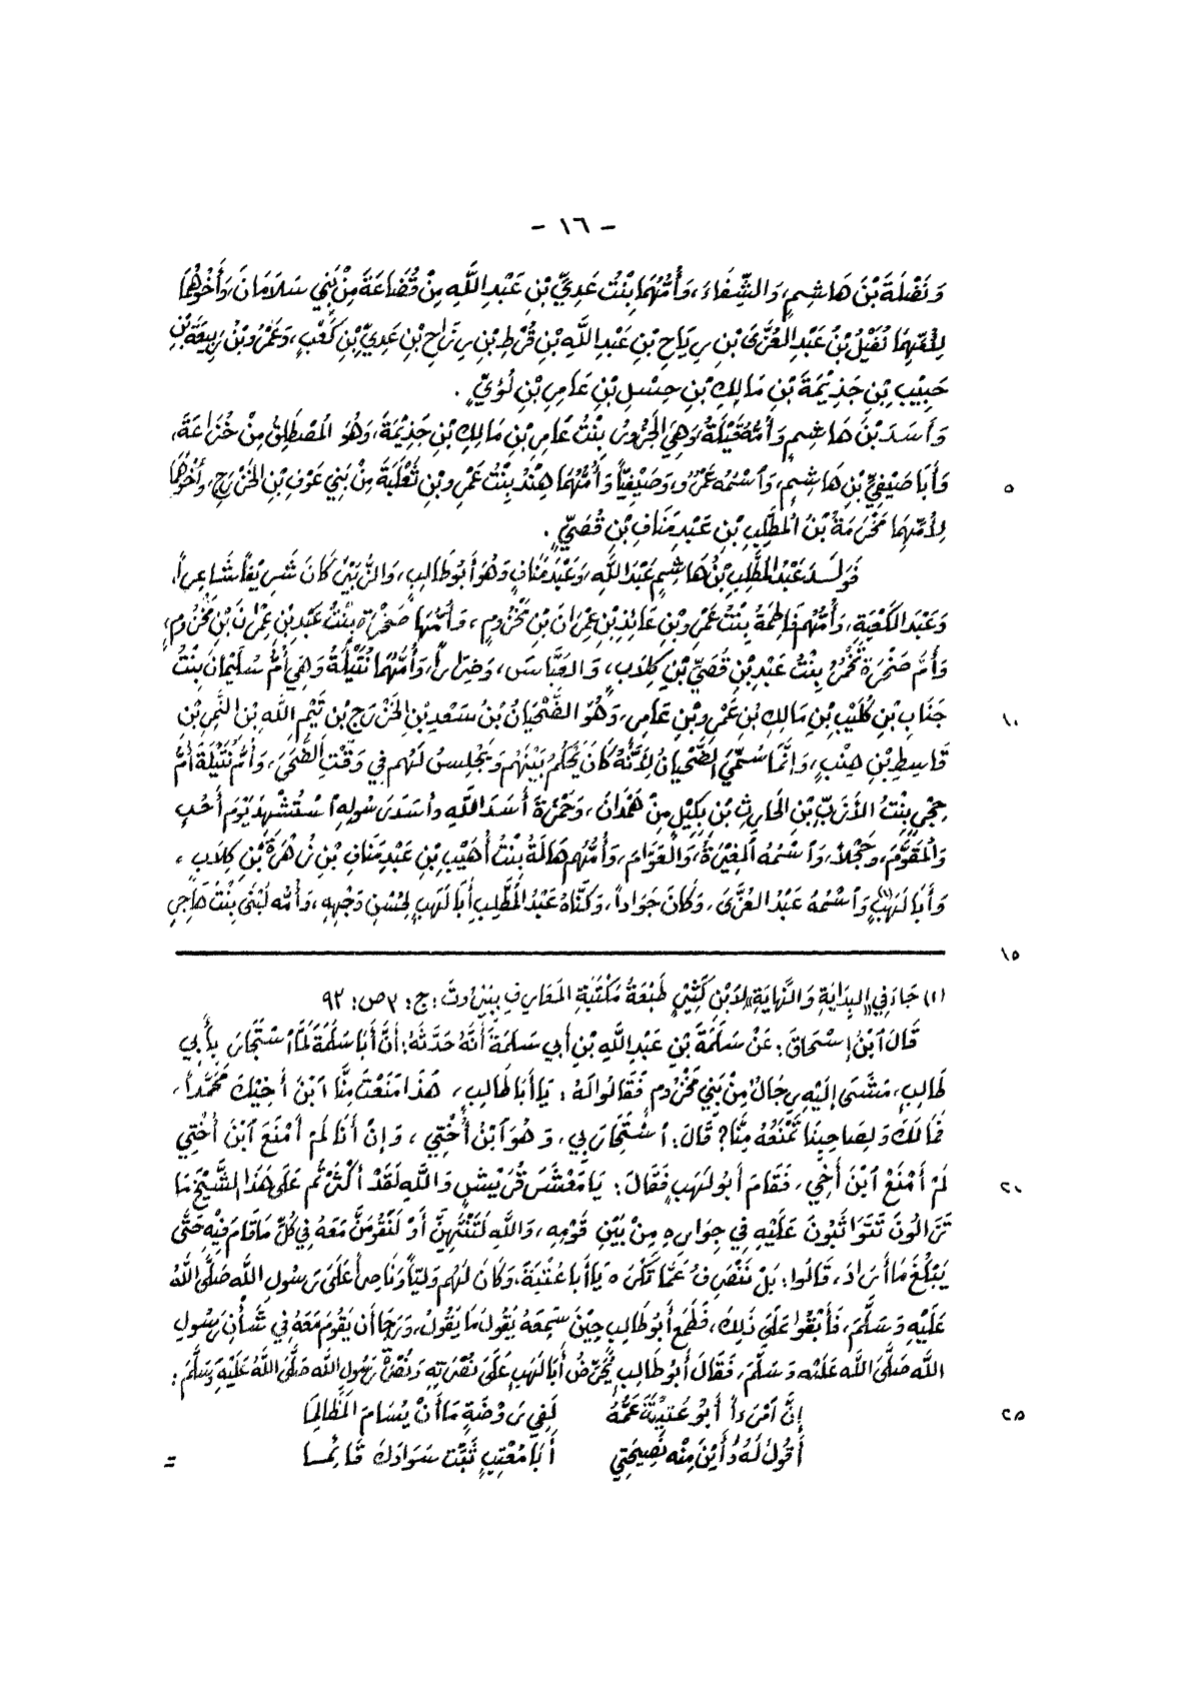 - ١٦ -
وَنَضْلَةَ بْنَ هَاشِمٍ، وَالشِّفَاءَ، وَأُمُّهُمَا بِنْتُ عَدِيِّ بْنِ عَبْدِ اللَّهِ مِنْ قُضَاعَةَ مِنْ بَنِي سَلَامَانَ، وَأَخُوهُمَا
لِأُمِّهِمَا نُفَيْلُ بْنُ عَبْدِ العُزَّى بْنِ رِيَاحِ بْنِ عَبْدِ اللَّهِ بْنِ قُرْطِ بْنِ رِزَاحِ بْنِ عَدِيِّ بْنِ كَعْبٍ، وَعَمْرُو بْنُ رَبِيعَةَ بْنِ
حَبِيْبِ بْنِ جَذِيْمَةَ بْنِ مَالِكِ بْنِ حِسْلِ بْنِ عَامِرِ بْنِ لُؤَيٍّ .
وَأَسَدَ بْنَ هَاشِمٍ وَأُمُّهُ قَيْلَةُ وَهِيَ الجَزُورُ بِنْتُ عَامِرِ بْنِ مَالِكِ بْنِ جَذِيْمَةَ، وَهُوَ المُصْطَلِقُ مِنْ خُزَاعَةَ،
وَأَبَا صَيْفِيِّ بْنِ هَاشِمٍ، وَٱسْمُهُ عَمْرٌو، وَصَيْفِيّاً وَأُمُّهُمَا هِنْدُ بِنْتُ عَمْرِو بْنِ ثَعْلَبَةَ مِنْ بَنِي عَوْفِ بْنِ الخَزْرَجِ، وَأَخُوهُمَا
٥
لِأُمِّهِمَا مَخْرَمَةُ بْنُ المُطَّلِبِ بْنِ عَبْدِ مَنَافِ بْنِ قُصَيٍّ .
فَوَلَدَ عَبْدُ المُطَّلِبِ بْنُ هَاشِمٍ عَبْدَ اللَّهِ، وَعَبْدَ مَنَافٍ وَهُوَ أَبُو طَالِبٍ، وَالزُّبَيْرَ كَانَ شَرِيْفاً شَاعِراً،
وَعَبْدَ الكَعْبَةِ، وَأُمُّهُمْ فَاطِمَةُ بِنْتُ عَمْرِو بْنِ عَائِذِ بْنِ عِمْرَانَ بْنِ مَخْزُومٍ، وَأُمُّهَا صَخْرَةُ بِنْتُ عَبْدِ بْنِ عِمْرَانَ بْنِ مَخْزُومٍ،
وَأُمُّ صَخْرَةَ تَخْمُرُ بِنْتُ عَبْدِ بْنِ قُصَيِّ بْنِ كِلَابٍ، وَالعَبَّاسَ، وَضِرَاراً، وَأُمُّهُمَا نُتَيْلَةُ وَهِيَ أُمُّ سُلَيْمَانَ بِنْتُ
جَنَابِ بْنِ كُلَيْبِ بْنِ مَالِكِ بْنِ عَمْرِو بْنِ عَامِرٍ، وَهُوَ الضَّحْيَانُ بْنُ سَعْدِ بْنِ الخَزْرَجِ بْنِ تَيْمِ اللَّهِ بْنِ النَّمِرِ بْنِ
١٠
قَاسِطِ بْنِ هِنْبٍ، وَإِنَّمَا سُمِّيَ الضَّحْيَانُ لِأَنَّهُ كَانَ يَحْكُمُ بَيْنَهُمْ وَيَجْلِسُ لَهُمْ فِي وَقْتِ الضُّحَى، وَأُمُّ نُتَيْلَةَ أُمُّ
حِجْرٍ بِنْتُ الأَزَبِّ بْنِ الحَارِثِ بْنِ بَكِيْلٍ مِنْ هَمْدَانَ، وَحَمْزَةَ أَسَدَ اللَّهِ وأَسَدَ رَسُولِهِ ٱسْتُشْهِدَ يَوْمَ أُحُدٍ
وَالمُقَوَّمَ، وَحَجْلاً، وَٱسْمُهُ المُغِيْرَةُ، وَالعَوَّامَ، وَأُمُّهُمْ هَالَةُ بِنْتُ أُهَيْبِ بْنِ عَبْدِ مَنَافِ بْنِ زُهْرَةَ بْنِ كِلَابٍ،
وَأَبَا لَهَبٍ(١) وَٱسْمُهُ عَبْدُ العُزَّى، وَكَانَ جَوَاداً، وَكَنَّاهُ عَبْدُ المُطَّلِبِ أَبَا لَهَبٍ لِحُسْنِ وَجْهِهِ، وَأُمُّهُ لُبْنَى بِنْتُ هَاجِرِ
١٥
(١) جَاءَ فِي «البِدَايَةِ وَالنِّهَايَةِ» لِابْنِ كَثِيْرٍ طَبْعَةُ مَكْتَبَةِ المَعَارِفِ بِبَيْرُوتَ: ج: ٣ ص: ٩٣
قَالَ ٱبْنُ إِسْحَاقَ: عَنْ سَلَمَةَ بْنِ عَبْدِ اللَّهِ بْنِ أَبِي سَلَمَةَ أَنَّهُ حَدَّثَهُ: أَنَّ أَبَا سَلَمَةَ لَمَّا ٱسْتَجَارَ بِأَبِي
طَالِبٍ، مَشَى إِلَيْهِ رِجَالٌ مِنْ بَنِي مَخْزُومٍ فَقَالُوا لَهُ: يَا أَبَا طَالِبٍ، هَذَا مَنَعْتَ مِنَّا ٱبْنَ أَخِيْكَ مُحَمَّداً،
فَمَا لَكَ وَلِصَاحِبِنَا تَمْنَعُهُ مِنَّا؟ قَالَ: ٱسْتَجَارَ بِي، وَهُوَ ٱبْنُ أُخْتِي، وَإِنْ أَنَا لَمْ أَمْنَعَ ٱبْنَ أُخْتِي
لَمْ أَمْنَعْ ٱبْنَ أَخِي، فَقَامَ أَبُو لَهَبٍ فَقَالَ: يَا مَعْشَرَ قُرَيْشٍ وَاللَّهِ لَقَدْ أَكْثَرْتُمْ عَلَى هَذَا الشَّيْخِ مَا
٢٠
تَزَالُونَ تَتَوَاثَبُونَ عَلَيْهِ فِي جِوَارِهِ مِنْ بَيْنِ قَوْمِهِ، وَاللَّهِ لَتَنْتَهِنَّ أَوْ لَنَقُومَنَّ مَعَهُ فِي كُلِّ مَا قَامَ فِيْهِ حَتَّى
يَبْلُغَ مَا أَرَادَ، قَالُوا: بَلْ نَنْصَرِفُ عَمَّا تَكْرَهُ يَا أَبَا عُتْبَةَ، وَكَانَ لَهُمْ وَلِيّاً وَنَاصِراً عَلَى رَسُولِ اللَّهِ صَلَّى اللَّهُ
عَلَيْهِ وَسَلَّمَ، فَأَبْقَوْا عَلَى ذَلِكَ، فَطَمِعَ أَبُو طَالِبٍ حِيْنَ سَمِعَهُ يَقُولُ مَا يَقُولُ، وَرَجَا أَن يَقُومَ مَعَهُ فِي شَأْنِ رَسُولِ
اللَّه صَلَّى اللَّه عَلَيْه وَسَلَّمَ، فَقَالَ أَبُو طَالِبٍ يُحَرِّضُ أَبَا لَهَبٍ عَلَى نُصْرَتِهِ وَنُصْرَةِ رَسُولِ اللَّه صَلَّى اللَّهُ عَلَيْهِ وَسَلَّمَ:
إِنَّ ٱمْرَءاً أَبُو عُتَيْبَةَ عَمُّهُ لَفِي رَوْضَةٍ مَا أَنْ يُسَامَ المَظَالِمَا
٢٥
أَقُولُ لَهُ وَأَيْنَ مِنْه نَصِيحَتِي أَبَا مُعْتِبٍ ثَبِّتْ سَوَادَكَ قَائِمَا
=